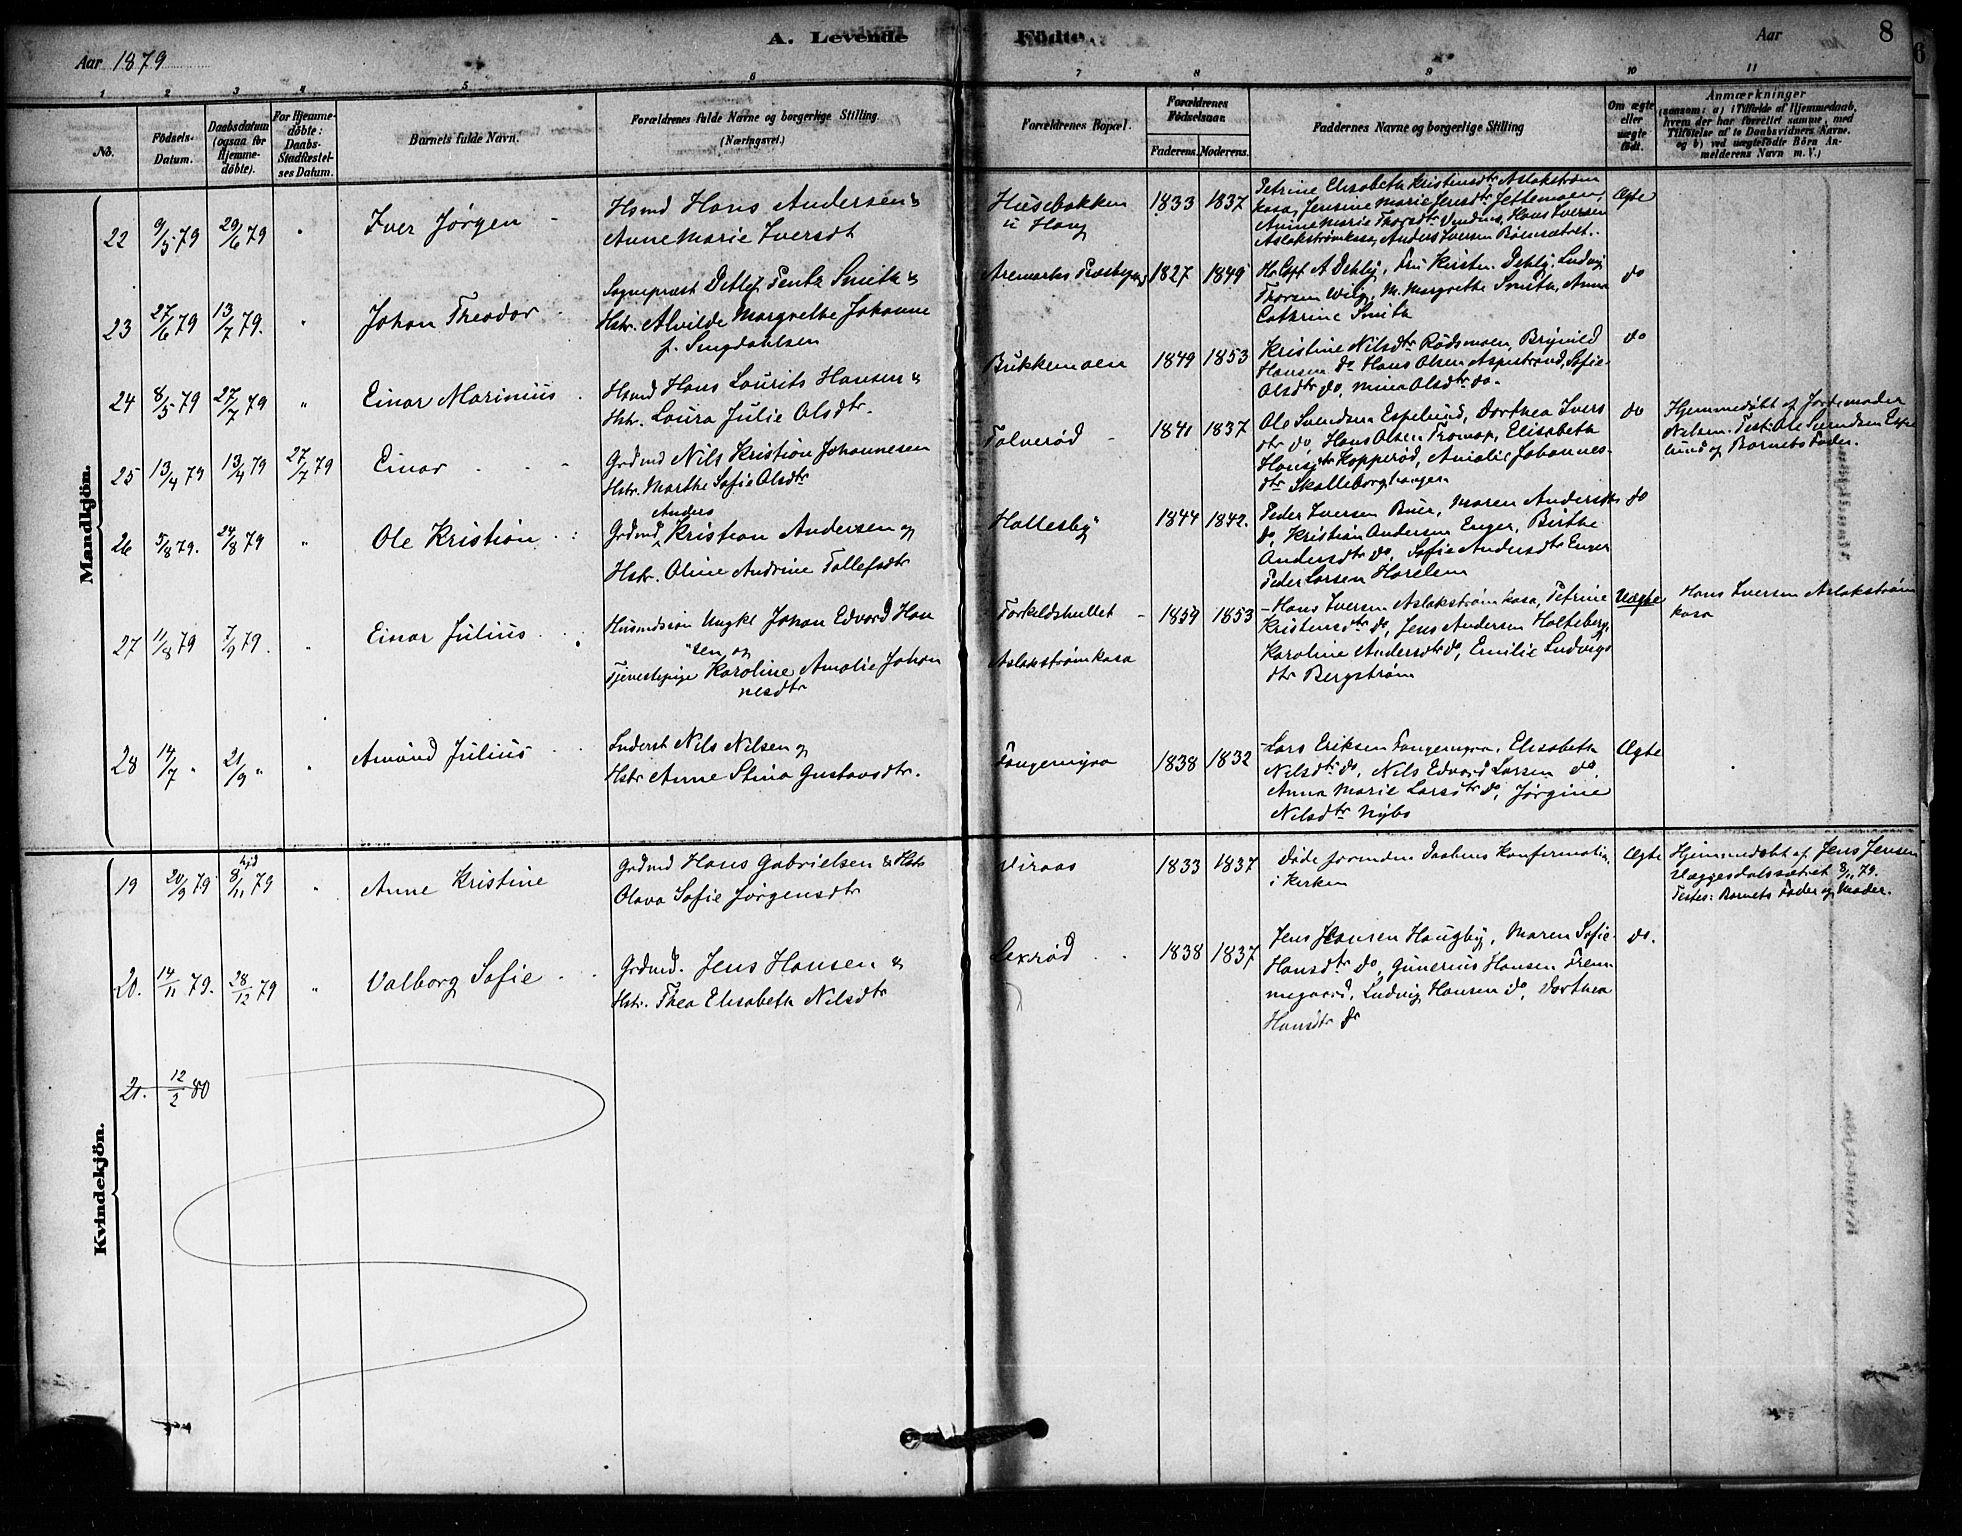 A. Levende Födte.
Aar 1879
Aar
8
1 2 3 4 5 6 7 8 9 10 11
No.
Födsels-Datum.
Daabsdatum (ogsaa for Hjemme-döbte).
For Hjemme-döbte: Daabs-Stadfæstel-ses Datum.
Barnets fulde Navn.
Forældrenes fulde Navne og borgerlige Stilling. (Næringsvei.)
Forældrenes Bopæl.
Forældrenes Födselsaar.
Faderens. Moderens.
Faddernes Navne og borgerlige Stilling
Om ægte eller uægte födt.
Anmærkninger
(saasom: a) i Tilfælde af Hjemmedaab, hvem der har forrettet samme, med Tilföielse af to Daabsvidners Navne, og b) ved uægtefödte Börn An-melderens Navn m. V.)
Mandkjön.
22 9/5 79 29/6 79 " Iver Jørgen
Hsmd Hans Andersen &
Anne Marie Iversdt
Husebakken
u Haug
1833 1837
Petrine Elisabeth Kristensdtr Aslakstrøm
kasa, Jensine Marie Jensdtr Jettemoen,
Anine Marie Thorsdtr Vindnes, Hans Iversen
Aslakstrømkasa, Anders Iversen Bøensætret.
Ægte
23 27/6 79 13/7 79. " Johan Theodor
Sognepræst Detlef Pentz Smith &
Hstr. Alvilde Margrethe Johanne
f. Smgdahlsen
Aremarks Præstegaard
1827 1849
Hr Cpt A Dehly, Fru Kirsten Dehly, Ludvig
Thorsen Wiig, M. Margrethe Smith, Anna
Cathrine Smith
do
24 8/5 79 27/7 79 " Einar Marinius
Hsmd Hans Laurits Hansen &
Hstr. Laura Julie Olsdtr.
Bukkemoen
1849 1853
Kristine Nilsdtr Rødsmoen, Brynild
Hansen do Hans Olsen Aspestrand, Sofie
Olsdtr do, Mina Olsdtr do.
do
25 13/4 79 13/4 79 27/7 79 Einar
Grdmd Nils Kristian Johannesen
Hstr. Marthe Sofie Olsdtr
Tolverød
1841 1837
Ole Svendsen Espelund, Dorthea Ivers
dtr do, Hans Olsen Tromop, Elisabeth
Hansdtr Kopperød, Amalie Johannes-
dtr Skalleborghaugen
do
Hjemmedøbt af Jordemoder
Nilsen. Test: Ole Svendsen Espe
lund og Barnets Fader.
26 5/8 79. 24/8 79 " Ole Kristian
Anders
Grdmd Kristian Andersen og
Hstr. Oline Andrine Tollefsdtr
Hollesby
1844 1842.
Peder Iversen Buer, Maren Andersdtr
do, Kristian Andersen Enger, Birthe
Andersdtr do, Sofie Andersdtr Enger
Peder Larsen Harslem
do
27 11/8 79 7/9 79. " Einar Julius
Husmdssøn Ungkl Johan Edvard Han
sen og
Tjenestepige Karoline Amalie Johan
nesdtr
Torkeldshullet
Aslakstrømkasa
1859 1853
Hans Iversen Aslakstrømkasa, Petrine
Kristensdtr do, Jens Andersen Holteberg,
Karoline Andersdtr do, Emilie Ludvigs
dtr Bergstrøm
Uægte
Hans Iversen Aslakstrøm
kasa
28 14/7 " 21/9 " " Amund Julius
Inderst Nils Nilsen og
Hstr Anne Stina Gustavsdtr.
Tangemyra
1838 1832
Lars Eriksen Tangemyra, Elisabeth
Nilsdtr do, Nils Edvard Larsen do,
Anna Marie Larsdtr do, Jørgine
Nilsdtr Nybo
Ægte
Kvindekjön.
19 20/9 79 hjd 8/11 79 " Anne Kristine
Grdmd Hans Gabrielsen & Hstr
Olava Sofie Jørgensdtr
Viraas
1833 1837
Døde forinden Daabens Konfirmation
i Kirken
Ægte
Hjemmedøbt af Jens Jensen
Hæggesdalssætret 8/11 79.
Testes: Barnets Fader og Moder.
20. 14/11 79. 28/12 79 " Valborg Sofie
Grdmd. Jens Hansen &
Hstr. Thea Elisabeth Nilsdtr
Lexrød
1838 1837
Jens Hansen Haugby, Maren Sofie
Hansdtr do, Gunerius Hansen Frem-
megaard, Ludvig Hansen do, Dorthea
Hansdtr do
do.
21. 12/2 80